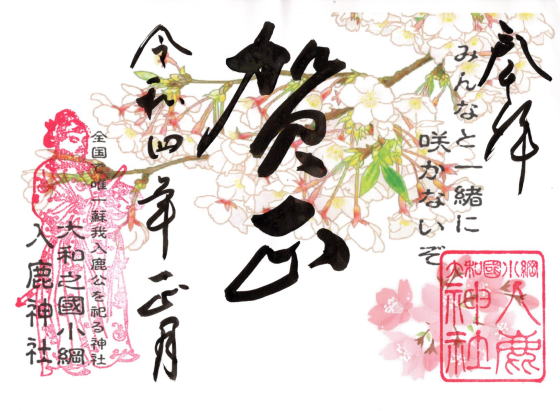 奉拝
みんなと一緒に
咲かないぞ
賀正
令和四年正月
全国で唯一蘇我入鹿公を祀る神社
大和之國小綱
入鹿神社
大和國小綱
入鹿
神社